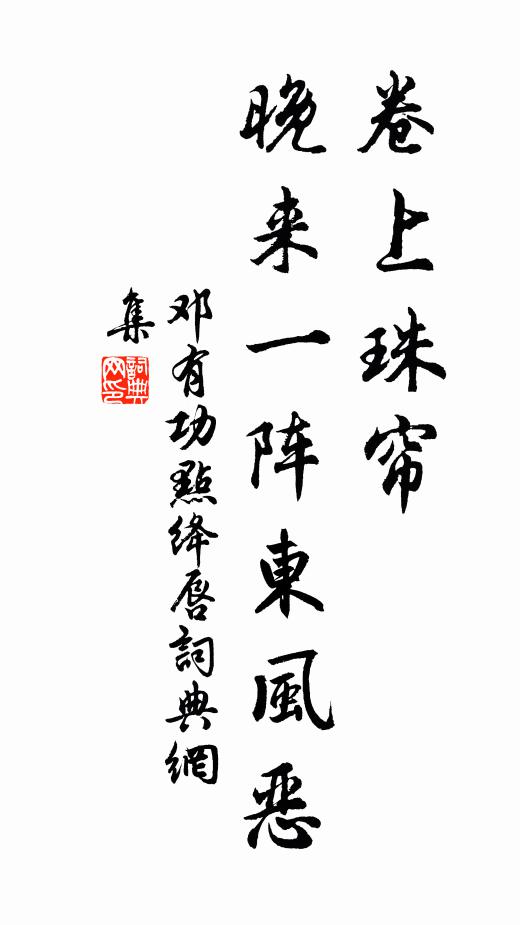 卷上珠帘
晚来一阵東風恶
邓有功點绛唇詞典網
集
詞典网印